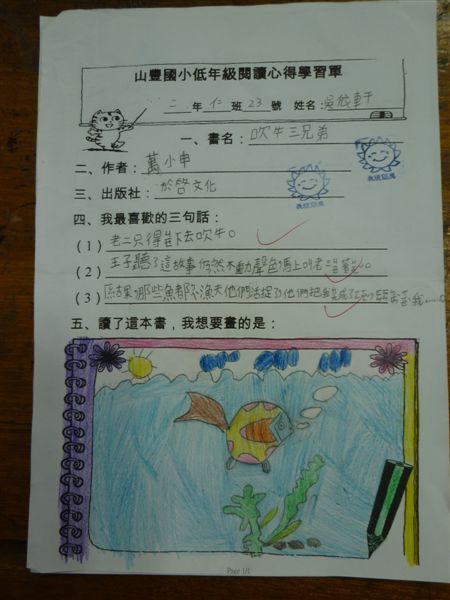 山豐國小低年級閱讀心得學習單
二年仁班23號 姓名:吳依軒
一、書名:吹牛三兄弟
二、作者:萬小申
三、出版社:於啓文化
四、我最喜歡的三句話:
(1)老二只得坐下去吹牛。
(2)王子聽了這故事仍然不動聲色馬上叫老
(3)結果哪些魚都 漁夫他們活捉了他們把我
五、讀了這本書,我想要畫的是:
Page 1/1